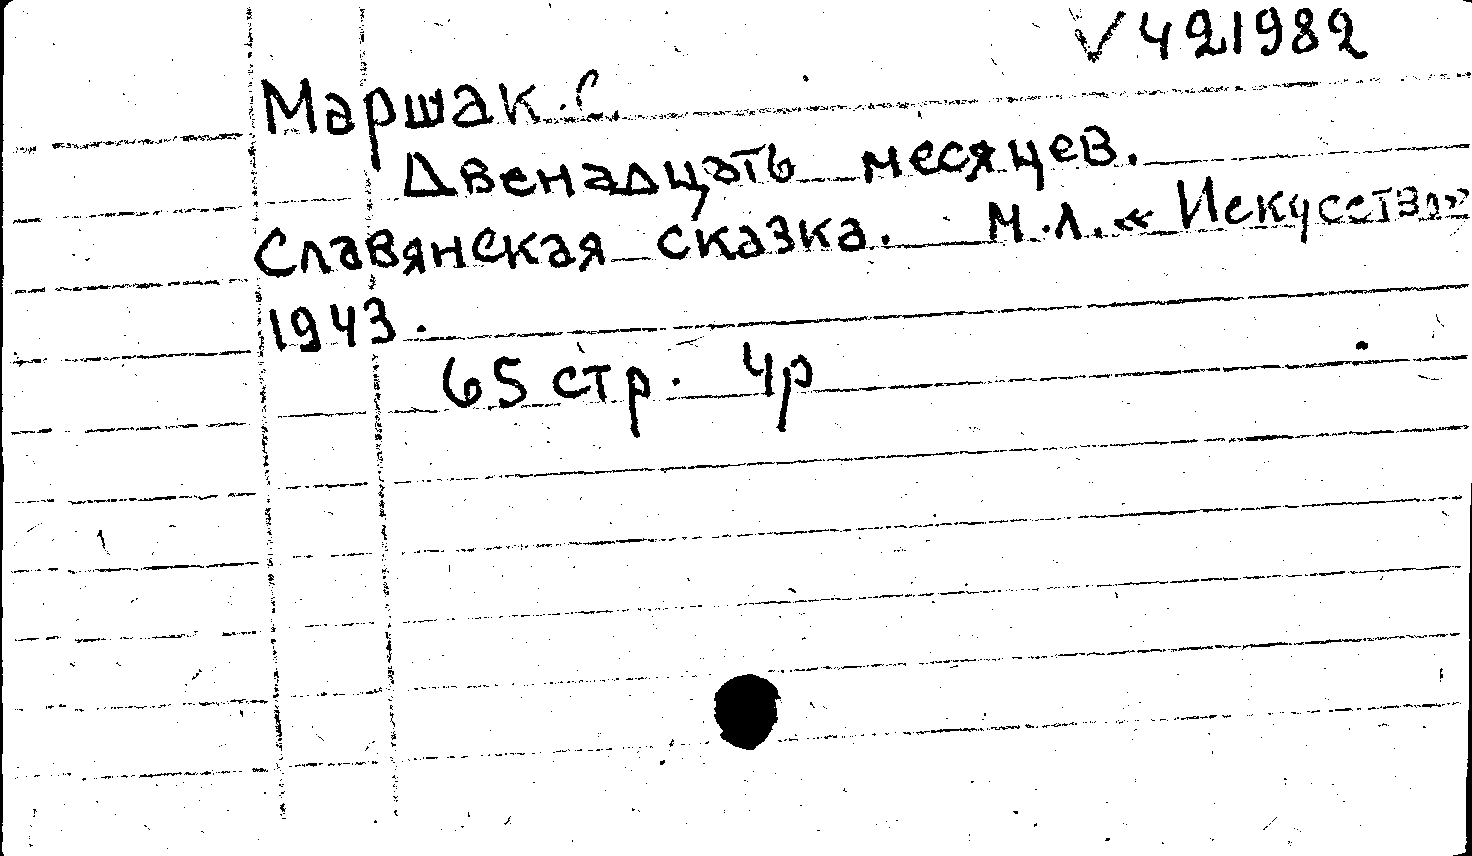 V 421982
Маршак. С.
Двенадцать месяцев.
Славянская сказка. М.Л. «Искусство»
1943.
65 стр. 4р